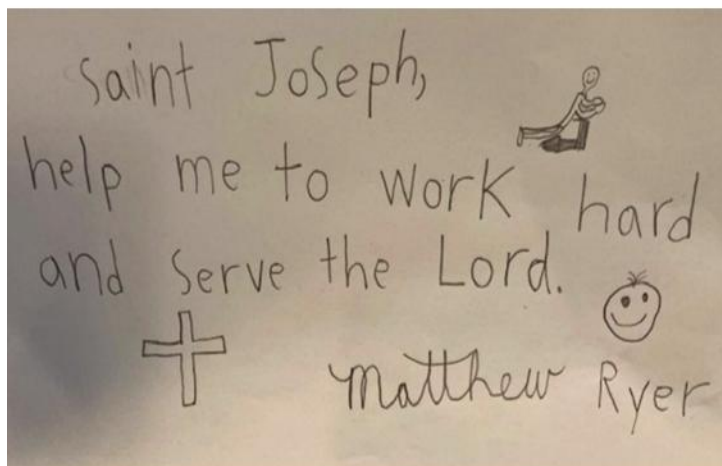 Saint Joseph,
help me to work hard
and serve the Lord.
Matthew Ryer